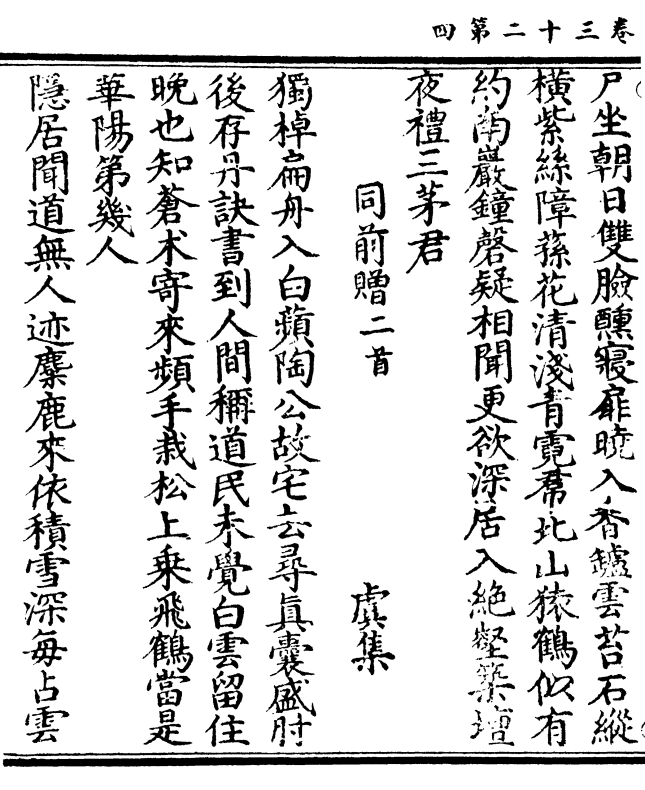 卷三十二第四
尸坐朝日雙臉醺寢扉曉入香鑪雲苔石縱
橫紫絲障蓀花清淺青霓帬北山猿鶴似有
約南巖鐘磬疑相聞更欲深居入絶壑築壇
夜禮三茅君
同前贈二首 虞集
獨棹扁舟入白蘋陶公故宅去尋眞囊盛肘
後存丹訣書到人間稱道民未覺白雲留住
晚也知蒼朮寄來頻手栽松上乗飛鶴當是
華陽第幾人
隱居聞道無人迹麋鹿來依積雪深每占雲